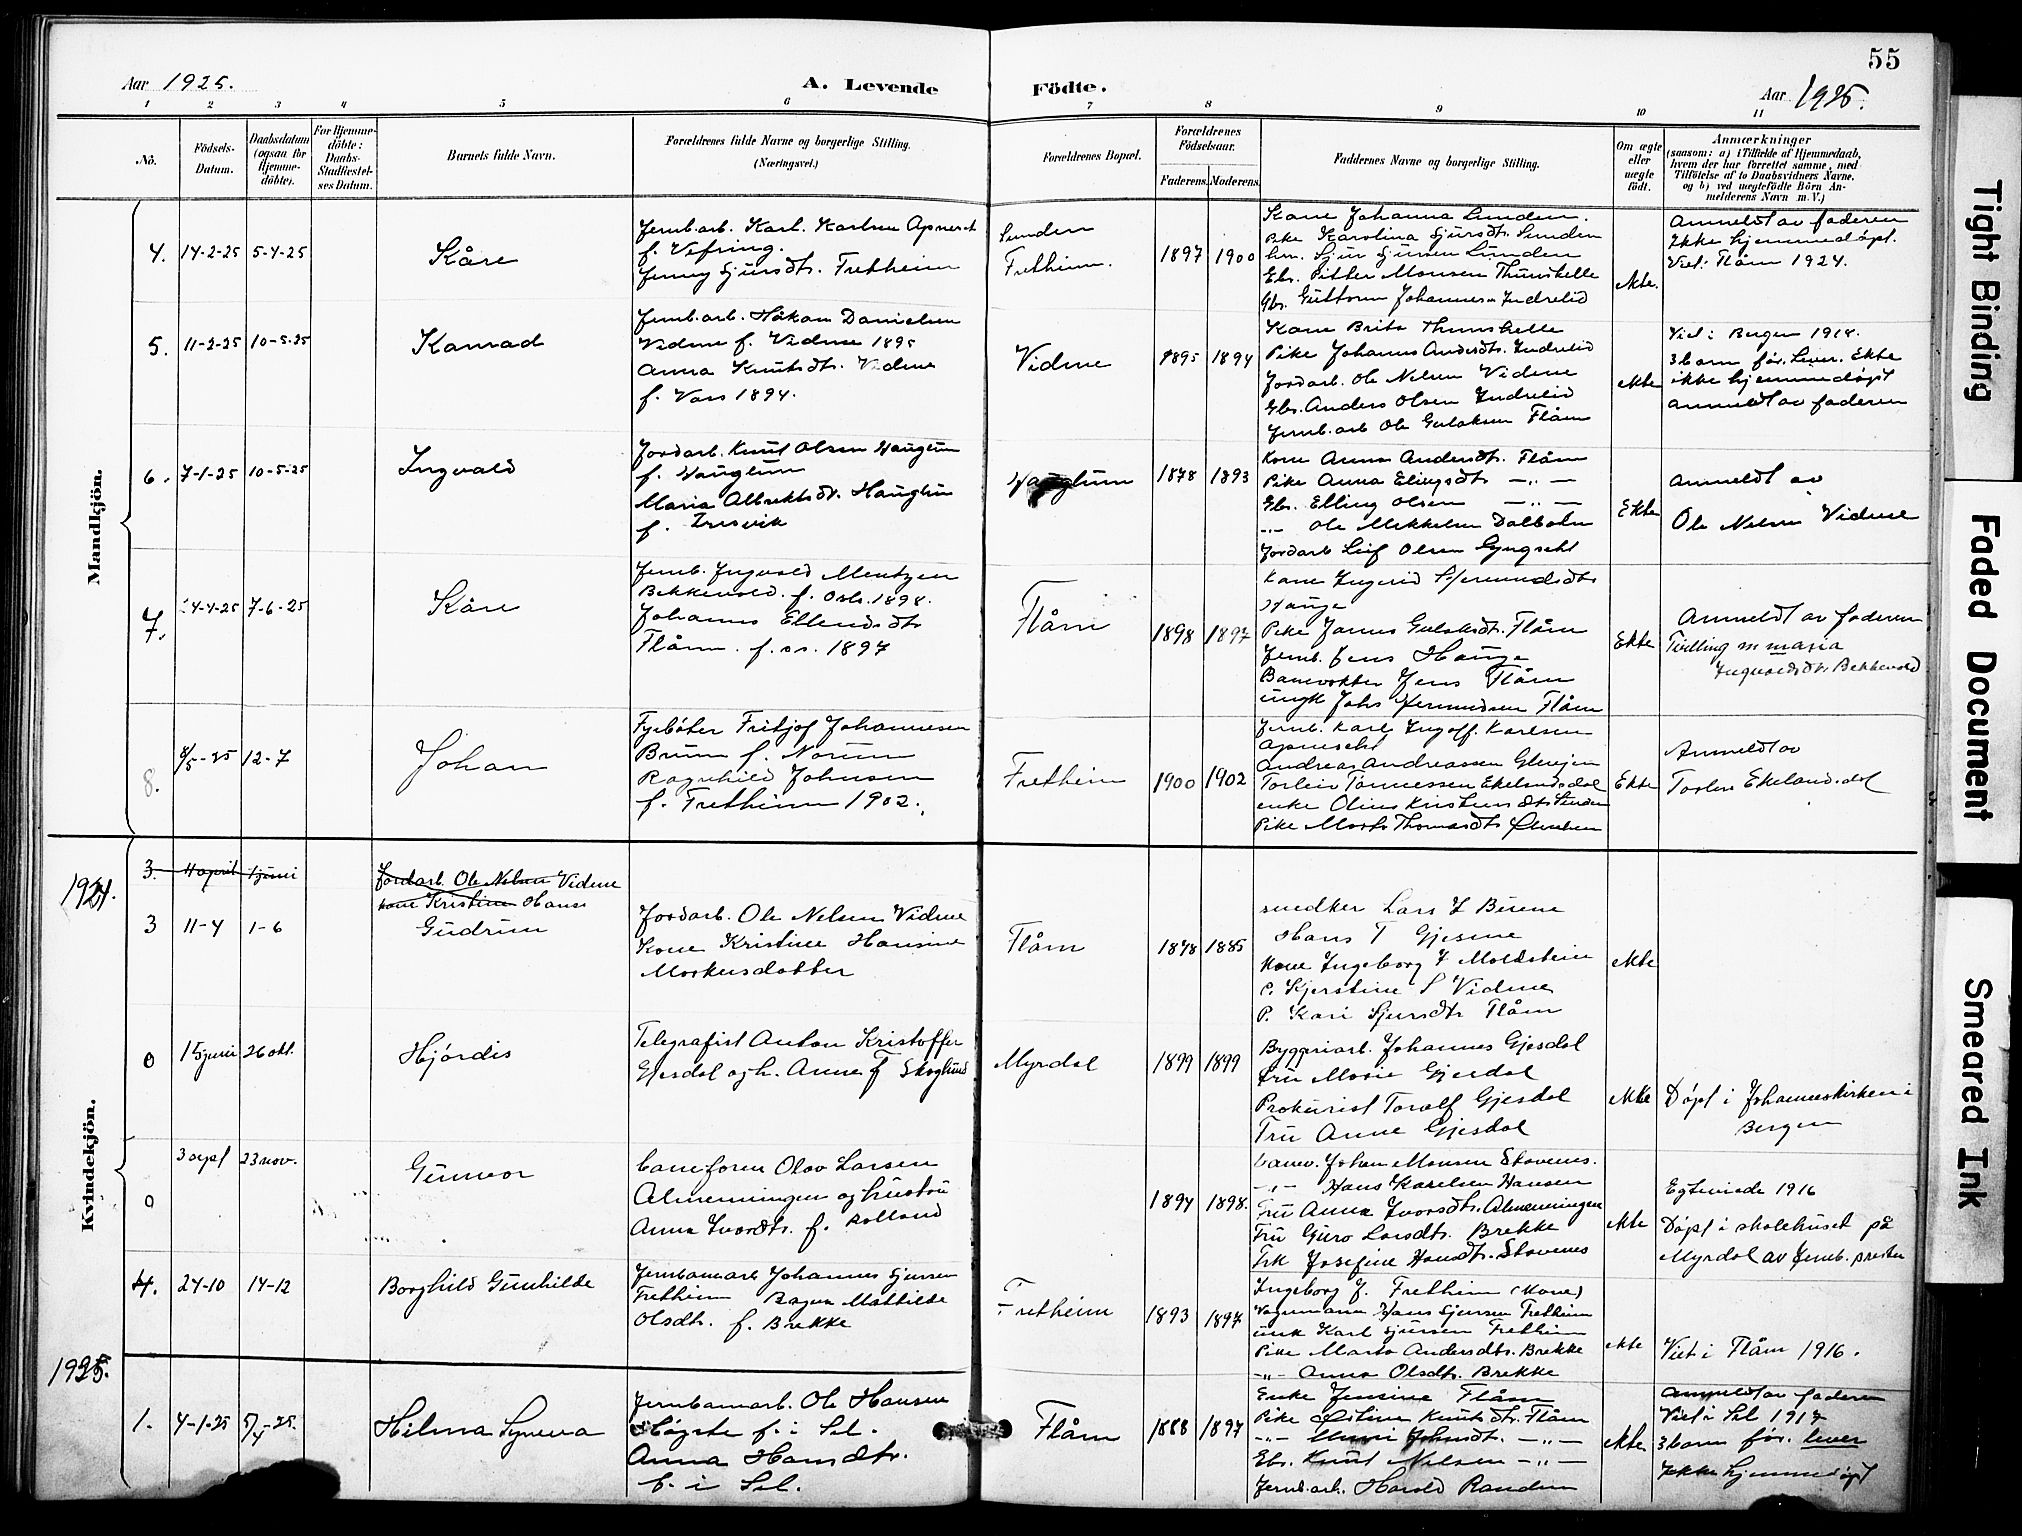 55
Aar 1925.
A. Levende Födte.
Aar 1925.
1 2 3 4 5 6 7 8 9 10 11
No.
Födsels-Datum.
Daabsdatum (ogsaa for Hjemme-döbte).
For Hjemme-döbte: Daabs-Stadfæstel-ses Datum.
Barnets fulde Navn.
Forældrenes fulde Navne og borgerlige Stilling. (Næringsvei.)
Forældrenes Bopæl.
Forældrenes Födselsaar.
Faderens. Moderens.
Faddernes Navne og borgerlige Stilling.
Om ægte eller uægte födt.
Anmærkninger
(saasom: a) i Tilfælde af Hjemmedaab, hvem der har forrettet samme, med Tilföielse af to Daabsvidners Navne, og b) ved uægtefödte Börn An-melderens Navn m. V.)
Mandkjön.
4. 14-2-25 5-4-25
Kåre
Jernb.arb. Karl Karlsen Apneset
f. Vefring.
Jenny Sjursdt. Fretheim
Lunden
Fretheim.
1897 1900
Kone Johanna Lunden.
Pike Karolina Sjursdt. Lunden
Sjur Sjursen Lunden
Gbr. Pitter Monsen Thunshelle
Gbr. Guttorm Johannesen Indrelid
ekte.
Anmeldt av faderen
Ikke hjemmedøpt.
Viet: Flåm 1924.
5. 11-2-25 10-5-25
Konrad
Jernb.arb. Håkon Danielsen
Vidme f. Vidme 1895
Anna Knutsdt. Vidme
f. Vors 1894.
Vidme
1895 1894
Kone Brita Thunshelle
Pike Johanna Andersdt. Indrelid
Jordarb. Ole Nelsen Vidme
Gbr. Anders Olsen Indrelid
Jernb.arb Ole Gulaksen Flåm
ekte
Viet i Bergen 1918.
3 barn før. Lever. Ekte
ikke hjemmedøpt
anmeldt av faderen
6. 7-1-25 10-5-25
Ingvald
Jordarb. Knut Olsen Hauglum
f. Hauglum
Maria Albrektsdt. Hauglum
f.
Hauglum
1878 1893
Kone Anna Andersdt. Flåm
Pike Anna Elingsdt —"—
Gbr. Elling Olsen —"—
-"- Ole Mikkelsen Dalbotn
Jordarb Leif Olsen
Ekte
Anmeldt av
Ole Nelsen Vidme
7. 24-4-25 7-6-25
Kåre
Jernb. Ingvald Mentzen
Bekkevold. f. Oslo. 1898.
Johanna Ellendsdt
Flåm. f. 1897
Flåm
1898 1897
Kone Ingerid
Hauge
Pike Jannes Gulaksdt. Flåm
Jernb. Jens Hauge
Banevokter Jens Flåm
ungk Johs Flåm
Ekte
Anmeldt av faderen
Tvilling m maria
Ingvaldsdt. Bekkevold
8. 8/5-25 12-7
Johan
Fyrbøter Fritjof Johannesen
Bruun f. Norum
Ragnhild Johnsen
f. Fretheim 1902.
Fretheim
1900 1902
Jernb. Karl Ingolf. Karlsen
Apneseth
Andreas Andreassen
Torleiv Tønnessen Ekelandsdal
enke Oline Kristensdt Lunden
Pike Marta Thomasdt.
Ekte
Anmeldt av
Torleiv Ekelandsdal
Kvindekjön.
1924.
3. 11 april 1 juni
Jordarb. Ole Nelsen Vidme
kone Kristine Hans
3 11-4 1-6
Gudrun
Jordarb. Ole Nelsen Vidme
Kone Kristine Hansine
Markusdatter
Flåm
1878 1885
snedker Lars
Hans T Gjesme
Kone Ingeborg Moldstein
Kjerstine S Vidme
P. Kari Sjursdtr Flåm
ekte
0 15 juni 26 okt.
Hjørdis
Telegrafist Anton Kristoffer
Gjesdal og h. Anna F Skoglund
Myrdal
1899 1899
Byggmarb. Johannes Gjesdal
Fru Marie Gjesdal
Prokurist Toralf Gjesdal
Fru Anne Gjesdal
ekte
Døpt i Johanneskirken i
Bergen
0 3 sept 23 nov.
Gunvor
baneform Olav Larsen
Almenningen og hustru
Anna Ivarsdt. f. Rolland
1894 1898.
banev. Johan Monsen Skovenes.
-"- Hans Karelsen Hansen
Fru Anna Ivarsdt. Almenningen
Fru Guro Larsdt. Brekke
Frk Josefine Hansdt. Skovenes
ekte
Egteviede 1916
Døpt i skolehuset på
Myrdal av Jernb. presten
4. 24-10 14-12
Borghild Gunhilde
Jernbanearb Johannes Sjursen
Fretheim Ragna Mathilde
Olsdt. f. Brekke
Fretheim
1893 1897
Ingeborg J. Fretheim (Kone)
Vognmann Hans Sjursen Fretheim
unk Karl Sjursen Fretheim
Pike Marta Andersdt. Brekke
-"- Anna Olsdt. Brekke
ekte
Viet i Flåm 1916.
1925.
1. 4-1-25 5/4-25.
Hilma Synneva
Jernbanearb. Ole Hansen
Høgste f. i Sel.
Anna Hansdtr.
f. i Sel.
Flåm
1888 1897
Enke Jensine Flåm
Pike Knutsdt. Flåm
-"- Johnsdt. —"—
Gbr. Knut Nelsen -"-
Jernb.arb. Harald Randen
ekte
Anmeldt av faderen
Viet i Sel 1917
3 barn før. lever
Ikke hjemmedøpt
Tight Binding
Faded Document
Smeared Ink